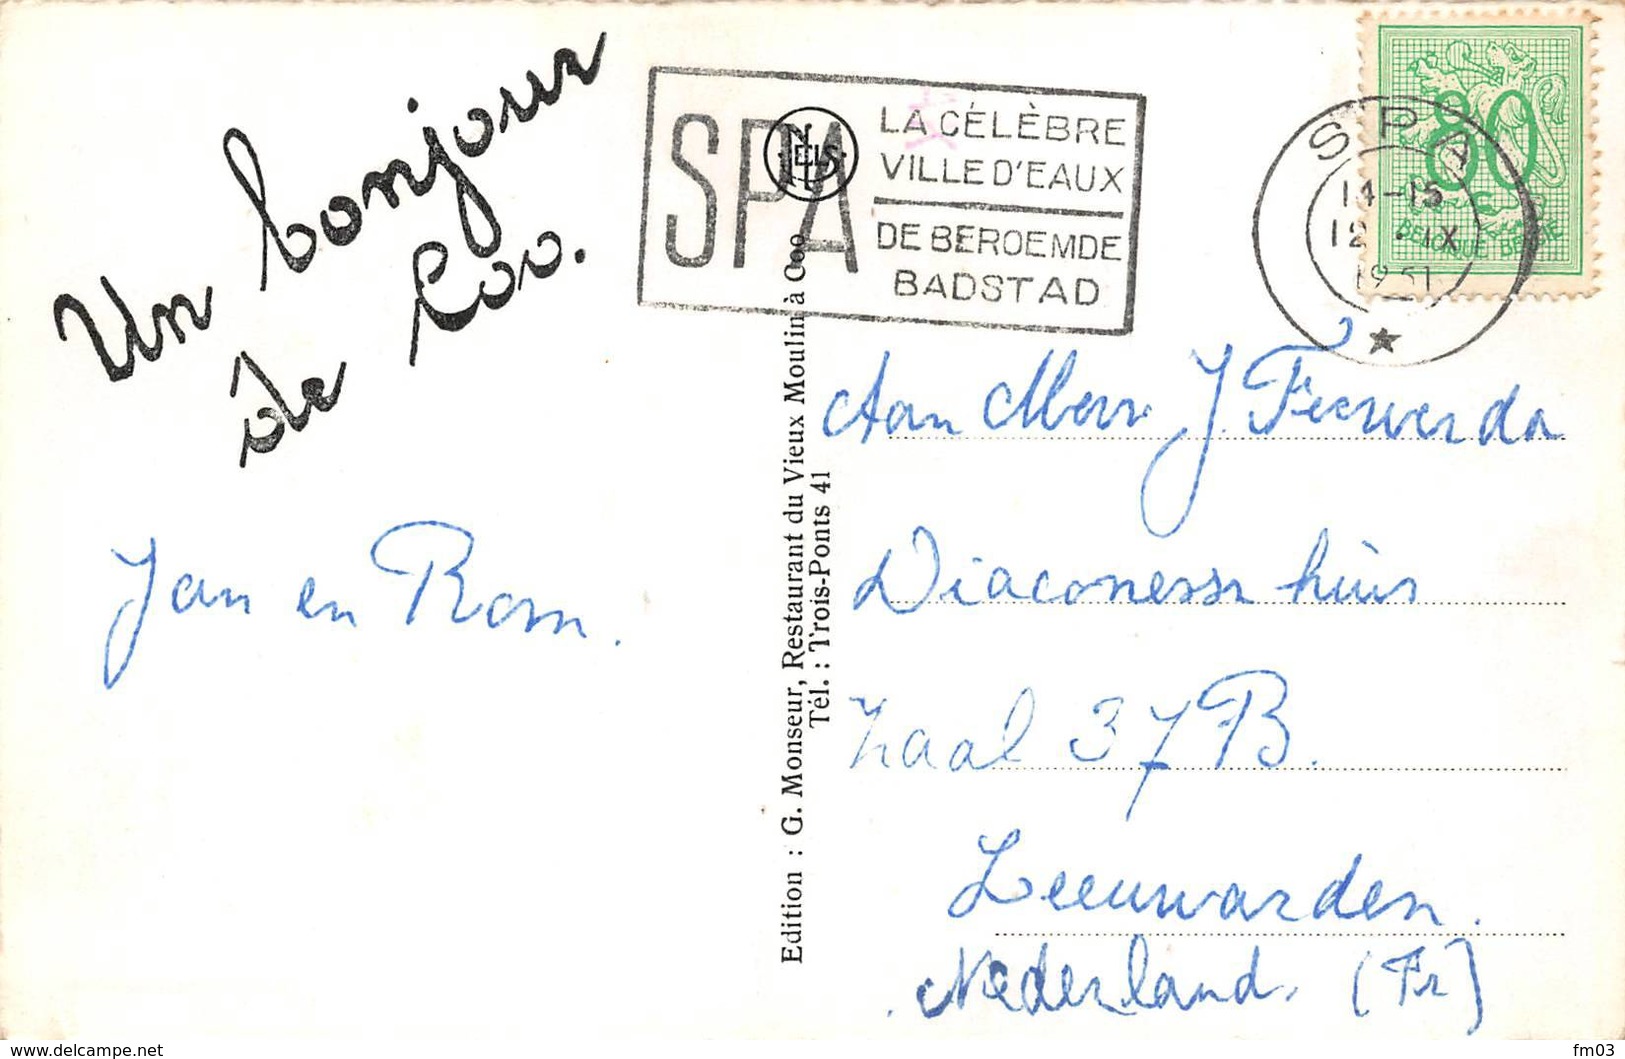 Un bonjour
de Coo.
Jan en Rom.
Edition : G. Monseur, Restaurant du Vieux Moulin à Coo
Tél. : Trois-Ponts 41
SPA
NELS
LA CÉLÈBRE
VILLE D'EAUX
DE BEROEMDE
BADSTAD
SPA
14-15
12 IX
1951
80
BELGIQUE BELGIE
Aan Mevr J. Feerwerda
Diaconessenhuis
Zaal 37 B.
Leeuwarden.
Nederland. (Fr)
delcampe.net
fm03